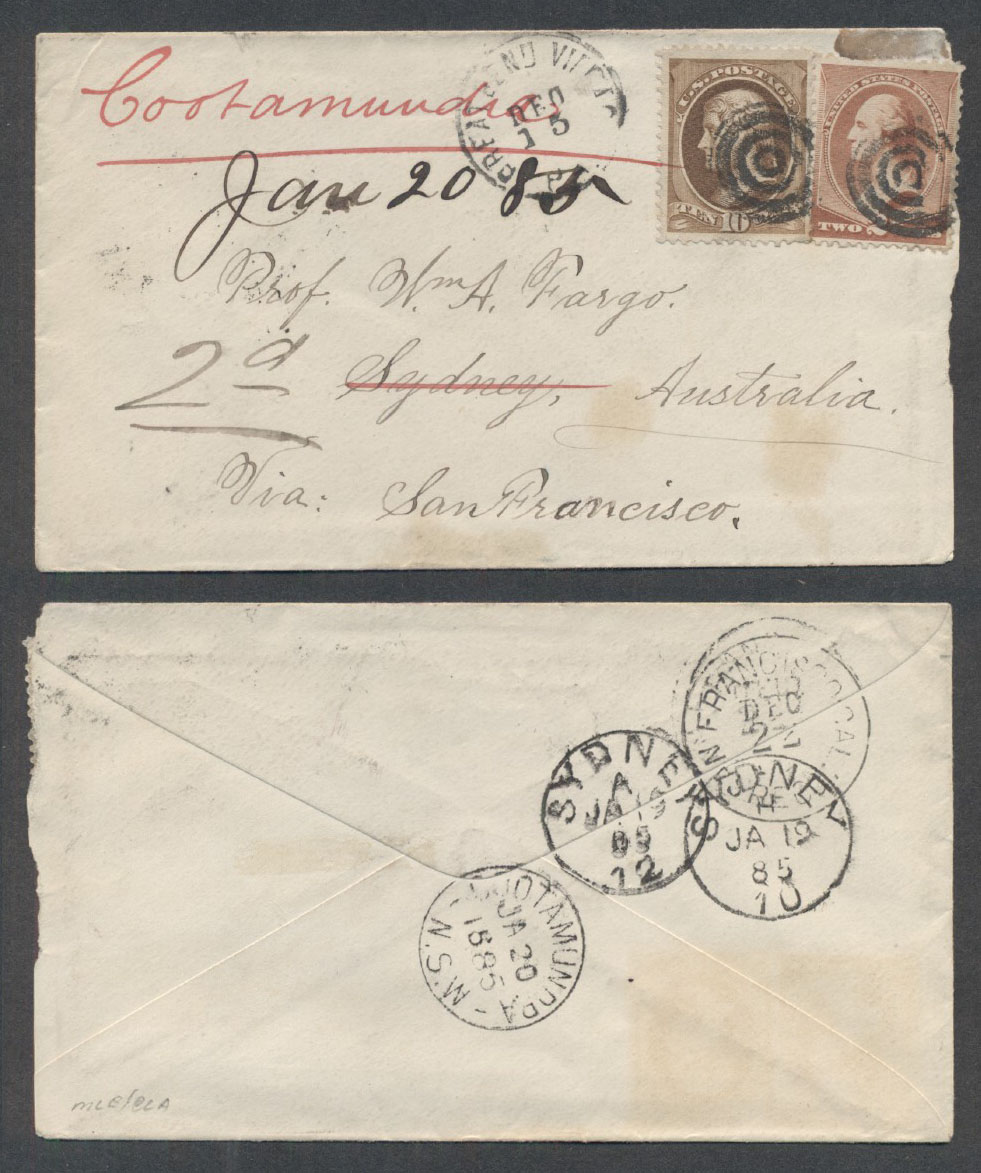 Cootamundra
GREAT BEND
DEC
15
PA
U.S. POSTAGE
TEN 10
UNITED STATES POSTAGE
TWO
Jan 20 85
Prof. Wm A. Fargo.
2d Sydney, Australia.
Via: San Francisco.
SAN FRANCISCO CAL.
DEC
22
REC'D
SYDNEY
A
JA 19
85
12
SYDNEY
JA 19
85
10
COOTAMUNDRA
JA 20
1885
N.S.W